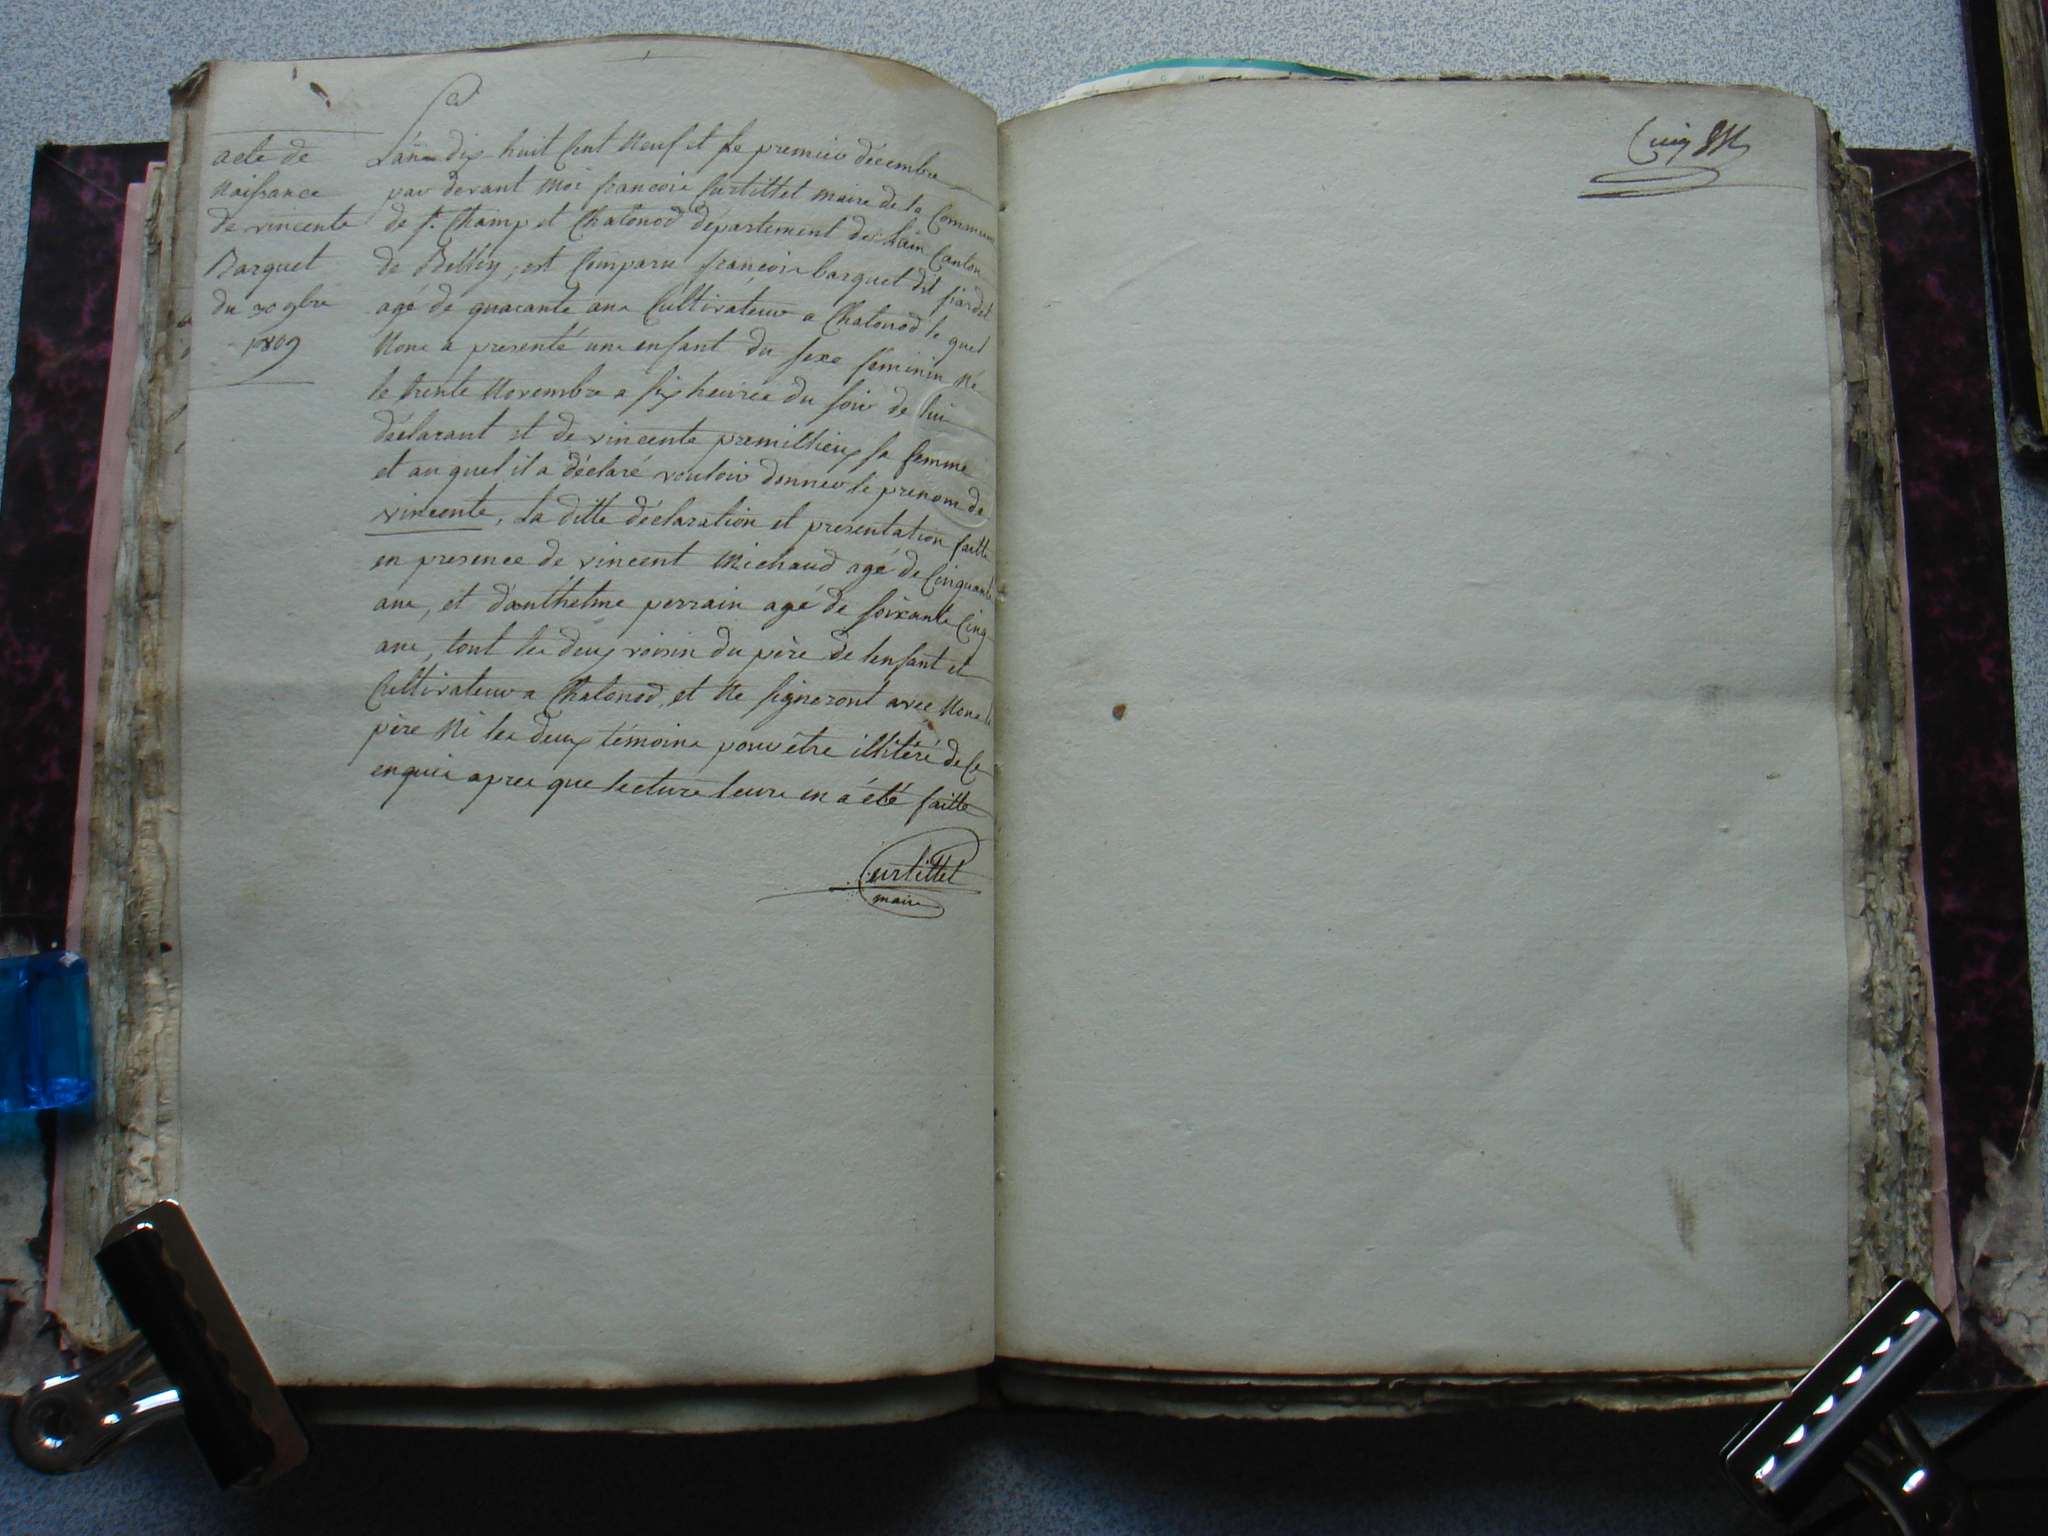 acte de
Naissance
de vincente
Barquet
du 30 9bre
1809
L'an dix huit Cent Neuf et le premier décembre
par devant Moi françois Curtillet maire de la Commune
de st. Champ et Chatonod département de L'ain Canton
de Belley, est Comparu françois barquet dit
agé de quarante ans Cultivateur a Chatonod le quel
Nous a presenté une enfant du sexe feminin Né
le trente Novembre a six heures du soir de lui
déclarant et de vincente premillieux sa femme
et au quel il a déclaré vouloir donner le prenom de
vincente, la ditte déclaration et presentation faitte
en presence de vincent Michaud agé de Cinquante
ans, et d'anthelme perrain agé de soixante Cinq
ans, tout les deux voisin du père de lenfant et
Cultivateur a Chatonod, et Ne signeront avec Nous le
père Ni les deux témoins pour être illitéré de Ce
enquis apres que lecture leurs en a été faitte
Curtillet
maire
Cinq